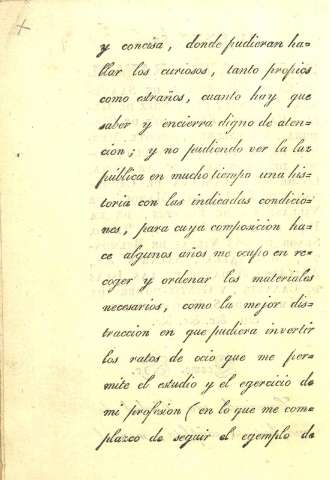 y concisa, donde pudieran ha=
llar los curiosos, tanto propios
como estraños, cuanto hay que
saber y encierra digno de aten=
cion; y no pudiendo ver la luz
pública en mucho tiempo una his=
toria con las indicadas condicio=
nes, para cuya composicion ha=
ce algunos años me ocupo en re=
coger y ordenar los materiales
necesarios, como la mejor dis=
traccion en que pudiera invertir
los ratos de ocio que me per=
mite el estudio y el egercicio de
mi profesion (en lo que me com=
plazco de seguir el egemplo de